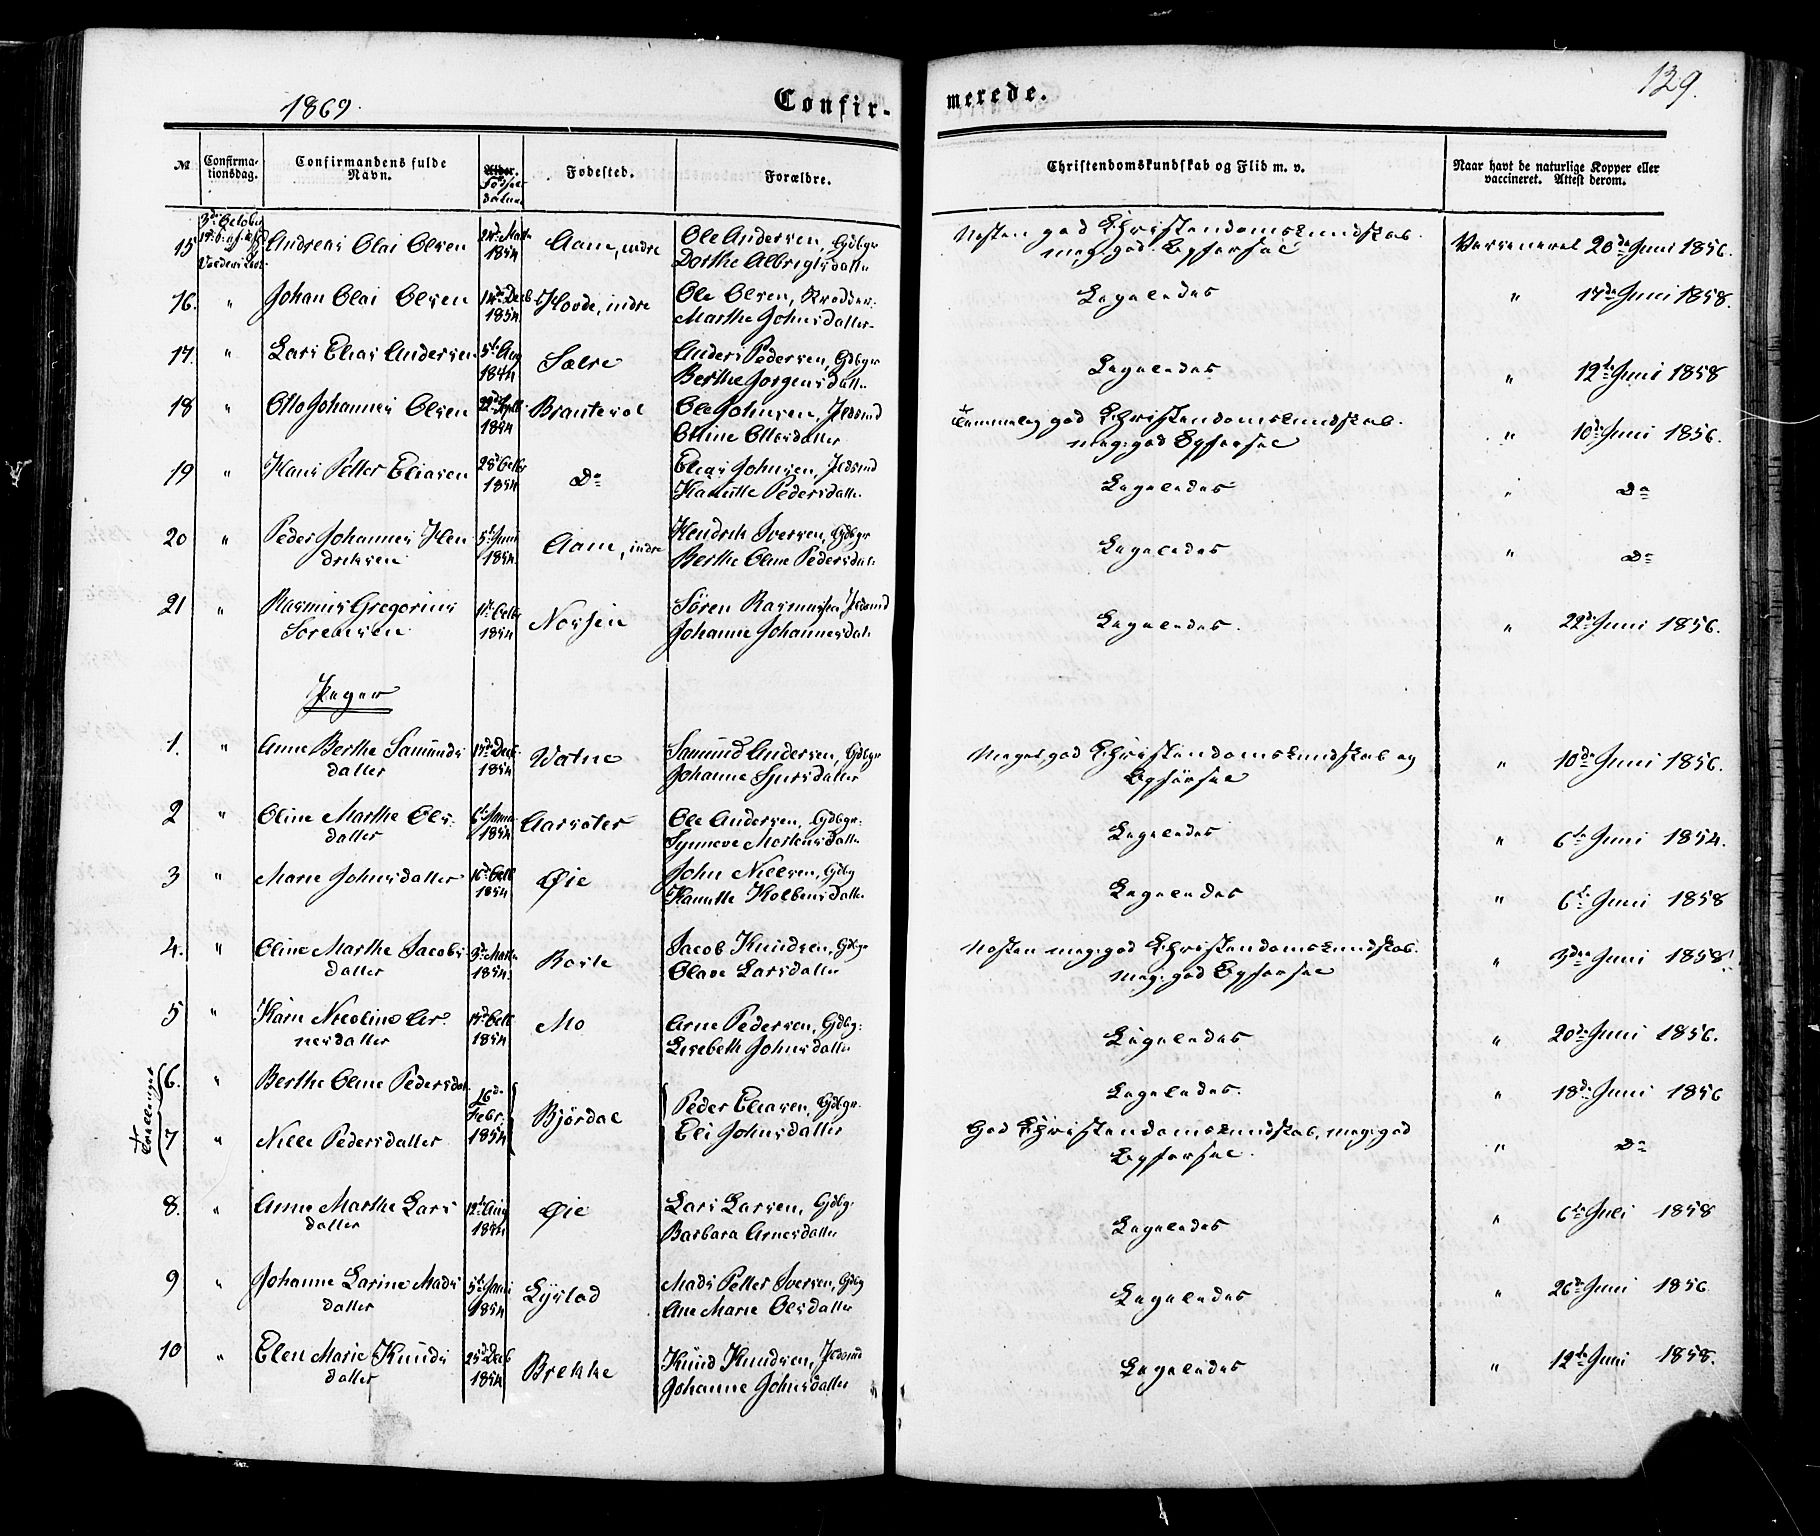 1869.
Confir-
merede.
129.
№
Confirma-
tionsdag.
Confirmandens fulde
Navn.
Alder.
Fødsels
datum
Fødested.
Forældre.
Christendomskundskab og Flid m. v.
Naar havt de naturlige Kopper eller
vaccineret. Attest derom.
3die October
15 Andreas Olai Olsen 1854 Aam, indre Ole Andersen, Gdbgr
Dorthe Albrigtsdatter
Næsten god Christendomskundskab.
meg. god Opførsel
Vaccineret 20de Juni 1856.
16. " Johan Olai Olsen 14de Decb 1854 Hovde, indre Ole Olsen,
Marthe Johnsdatter
Ligeledes " 17de Juni 1858.
17. " Lars Elias Andersen 5te Aug Sætre Anders Pedersen, Gdbgr
Berthe Jørgensdatter
Ligeledes " 12te Juni 1858
18 " Otto Johannes Olsen 22de Septb 1854 Ole Johnsen, Indsid
Oline Olsdatter
Temmelig god Christendomskundskab.
meg. god Opførsel
" 10de Juni 1856.
19 " Hans Petter Eliasen 28de Octbr 1854 Do Elias Johnsen, Indsid
Pedersdatter
Ligeledes " Do
20 " Peder Johannes Hen
driksen
5te Juni 1854 Aam, indre Hendrik Iversen, Gdbgr
Berthe Oline Pedersdatr
Ligeledes " Do
21 " Rasmus Gregorius
Sørensen
1854 Søren Rasmussen Indsid
Johanne Johannesdatr
Ligeledes. " 22de Juni 1856.
Piger
1. " Anne Berthe Samunds
datter
1854 Watne Samund Andersen, Gdbgr
Johanne Sjursdatter
Meget god Christendomskundskab og
Opførsel
" 10de Juni 1856.
2 " Oline Marthe Ols-
datter
1854 Aarsæter Ole Andersen, Gdbgr.
Synneve Mortensdatter
Ligeledes " 6te Juni 1854.
3 " Marie Johnsdatter 16de Octb 1854 Øie John Nilsen, Gdbg
Kolbensdatter
Ligeledes " 6te Juni 1858
4. " Oline Marthe Jacobs
datter
1854. Jacob Knudsen, Gdbgr
Olave Larsdatter
Næsten meg. god Christendomskundskab.
meg. god Opførsel
" 3die Juni 1858.
5 " Karn Nicoline Ar-
nesdatter
1854 Mo Arne Pedersen, Gdbg.
Lisebeth Johnsdatter
Ligeledes " 20de Juni 1856.
Tvillinger
6. " Berthe Oline Pedersdat. 16de
Febr.
1854
Bjørdal Peder Eliasen, Gdbgr.
Eli Johnsdatter
Ligeledes. " 18de Juni 1856
7 " Nille Pedersdatter
God Christendomskundskab, meg. god
Opførsel.
" Do
8. " Anne Marthe Lars
datter
12te Aug 1854 Øie Lars Larsen, Gdbg.
Barbara Arnesdatter
Ligeledes " 6te Juli 1858
9 " Johanne Larine Mads
datter
5te Juni 1854 Mads Petter Iversen, Gdbg
Ane Marie Olsdatter
Ligeledes " 26de Juni 1856
10 " Elen Marie Knuds
datter
25de Decb 1854 Brekke Knud Knudsen, Indsid
Johanne Johnsdatter
Ligeledes " 12te Juni 1858.